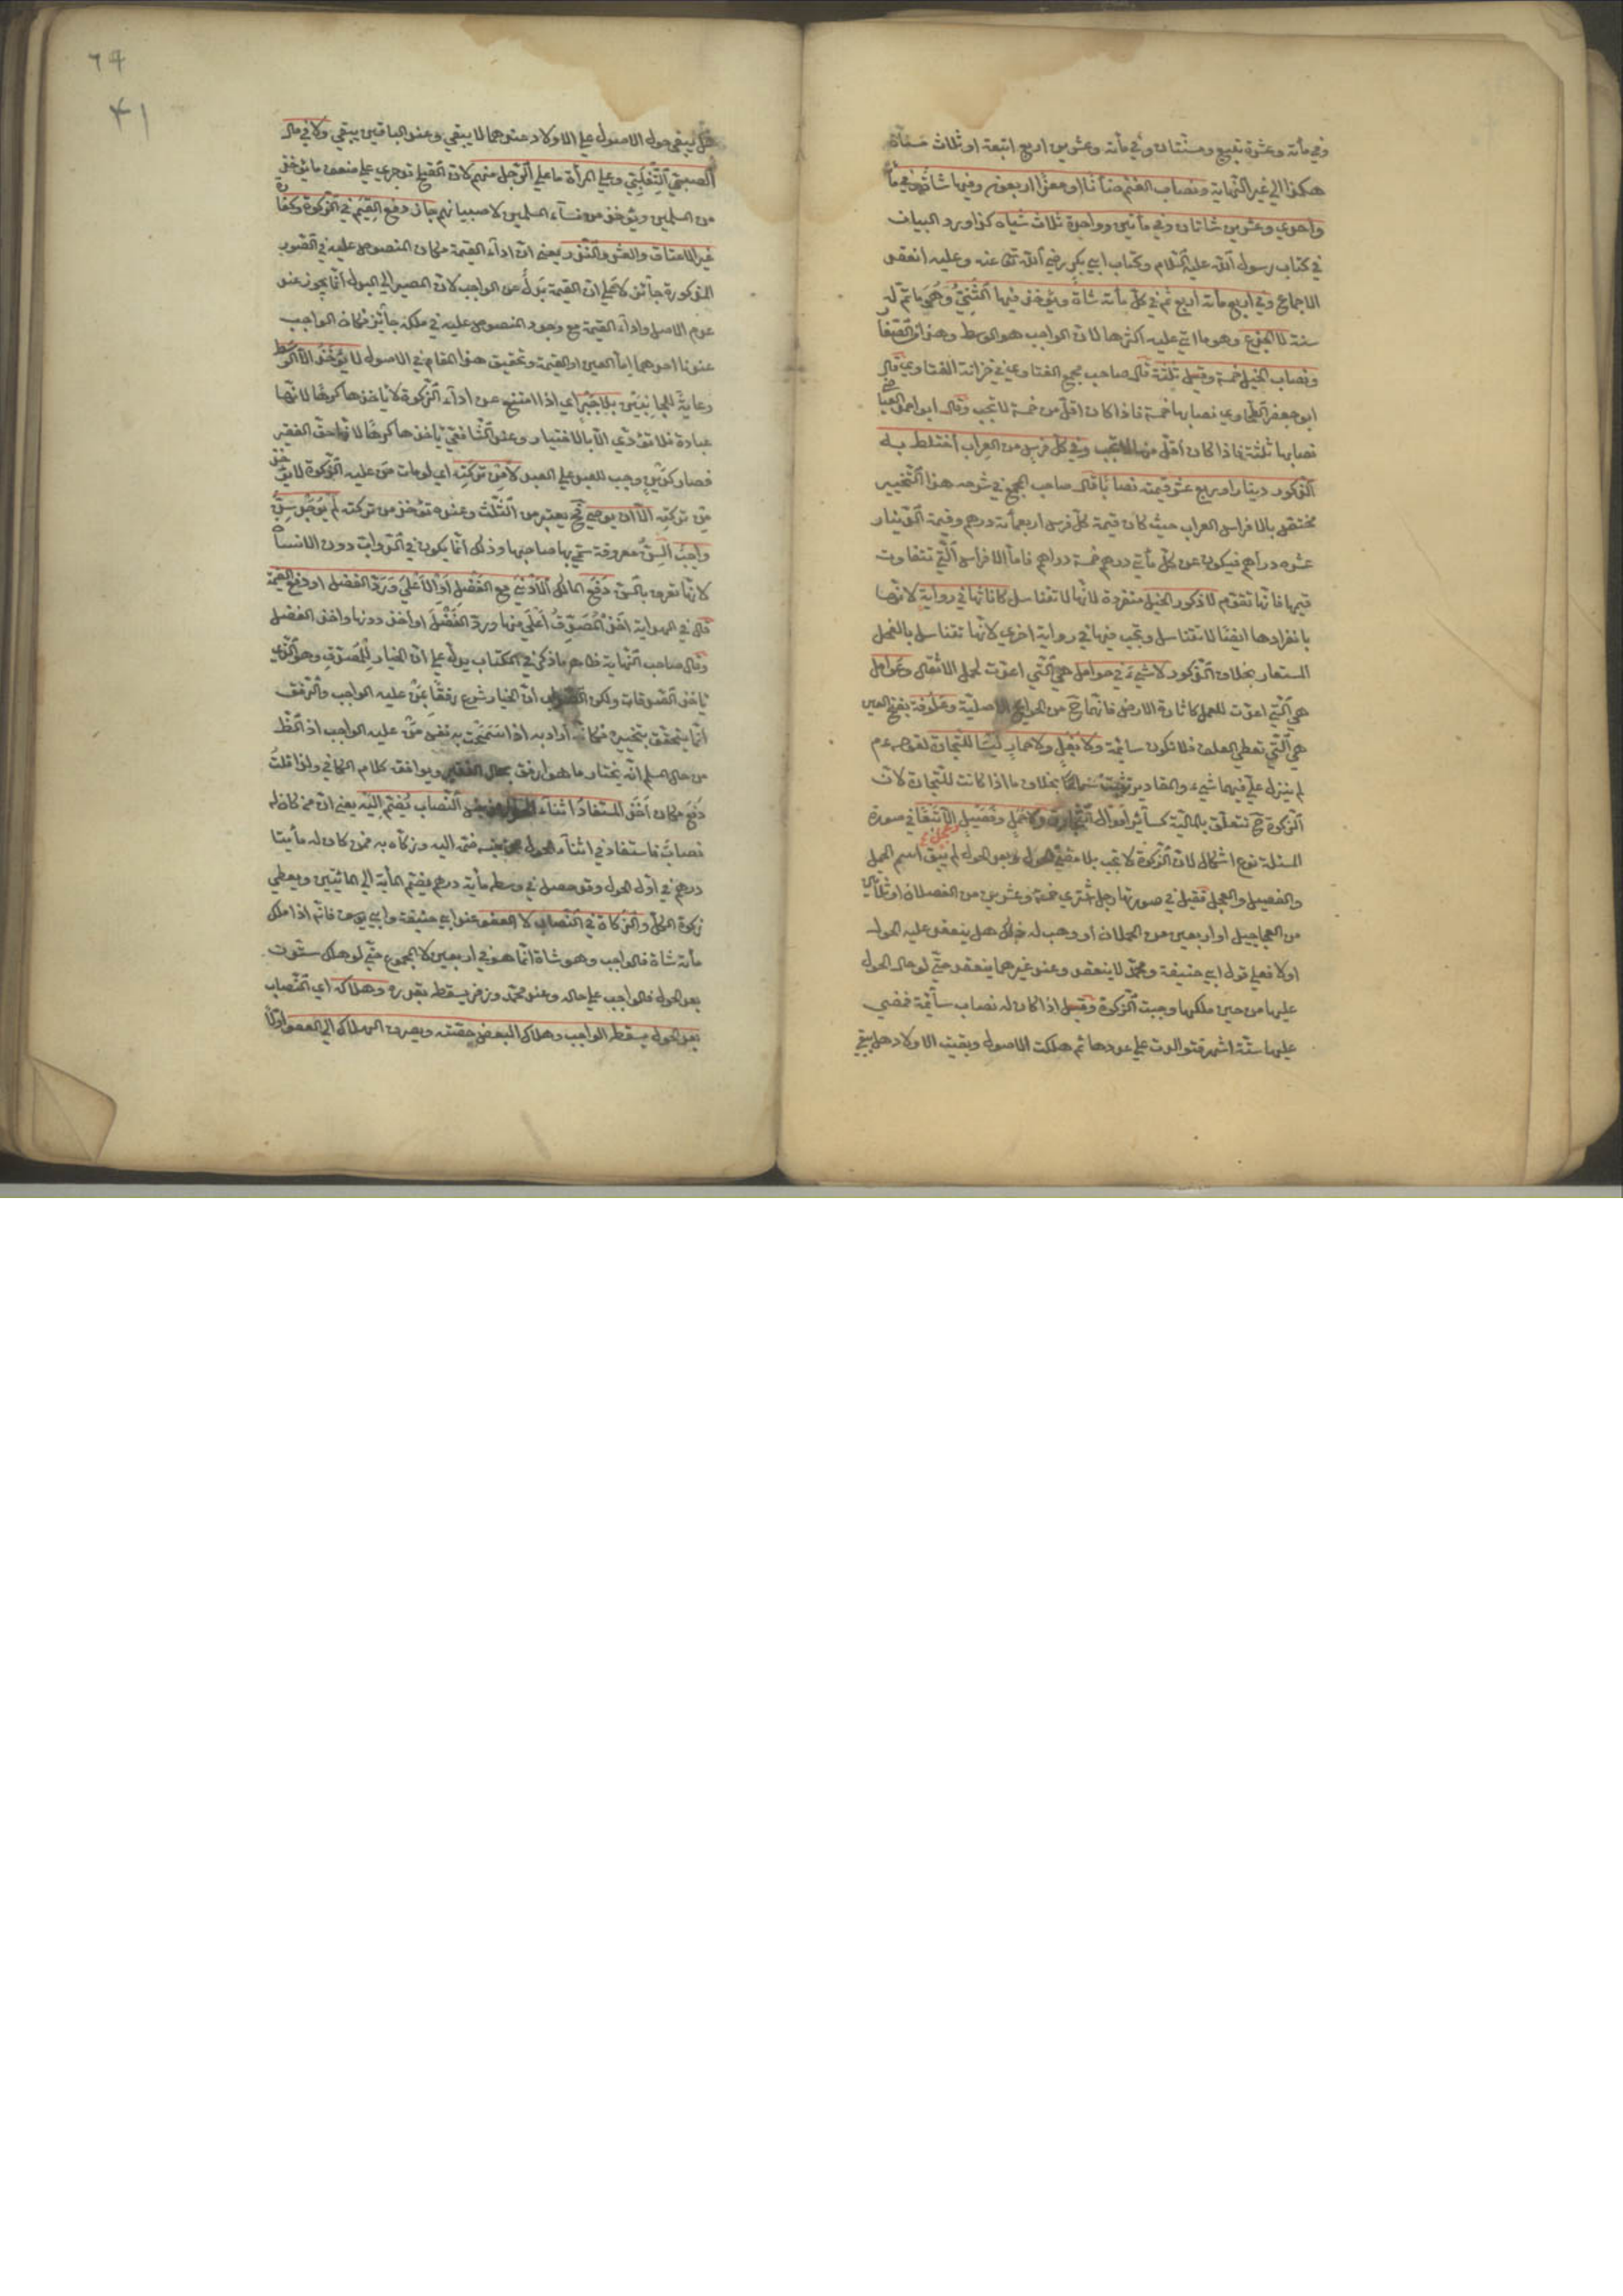 وفي مأتة وعشرة تبيع ومسنتان وفي مأتة وعشرين اربع اتبعة او ثلاث مسنات
هكذا الي غير النهاية ونصاب الغنم ضأنا او معزا اربعون وفيها شاة وفي مأتة
واحدي وعشرين شاتان وفي مأتين وواحدة ثلاث شياه كذا ورد البيان
في كتاب رسول الله عليه السلام وكتاب ابي بكر رضي الله تعا عنه وعليه انعقد
الاجماع وفي اربع مأتة اربع ثم في كل مأتة شاة ويؤخذ فيها الثني وهي ما تم له
سنة لا الجذع وهو ما اتي عليه اكثرها لان الواجب هو الوسط وهذا من الصغار
ونصاب الخيل خمسة وقيل ثلثة قال صاحب مجمع الفتاوي في خزانة الفتاوي قال
ابو جعفر الطحاوي نصابها خمسة فاذا كان اقل من خمسة لا تجب وقال ابو احمد العياضي
نصابها ثلثة فاذا كان اقل منها لا تجب وفي كل فرس من العراب اختلط به
الذكور دينار او ربع عشر قيمته نصابا قال صاحب المجمع في شرحه هذا التخيير
مختص بالافراس العراب حيث كان قيمة كل فرس اربعمأتة درهم وقيمة الدينار
عشرة دراهم فيكون عن كل مأتي درهم خمسة دراهم فاما الافراس التي تتفاوت
قيمها فانها تقوم لا ذكور الخيل منفردة لانها لا تتناسل كاناثها في رواية لانها
بانفرادها ايضا لا تتناسل وتجب فيها في رواية اخري لانها تتناسل بالفحل
المستعار بخلاف الذكور لا شيئ في حوامل هي التي اعدت لحمل الاثقال وعوامل
هي التي اعدت للعمل كاثارة الارض فانها ح من الحوايج الاصلية وعلوفة بفتح العين
هي التي تعطي العلف فلا تكون سائمة ولا بغل ولا حمار ليسا للتجارة لقوله عم
لم ينزل علي فيهما شيء والمقادير تثبت سماعا بخلاف ما اذا كانت للتجارة لان
الزكوة ح تتعلق بالمالية كسائر اموال التجارة ولا حمل وفصيل الا تبعا في صورة
وعجل
المسئلة نوع اشكال لان الزكوة لا تجب بلا مضي الحول وبعد الحول لم يبق اسم الحمل
والفصيل والعجل فقيل في صورتها رجل اشتري خمسة وعشرين من الفصلان او ثلثين
من العجاجيل او اربعين من الحملان او وهب له ذلك هل ينعقد عليه الحول
اولا فعلي قول ابي حنيفة ومحمد لا ينعقد وعند غيرهما ينعقد حتي لو حال الحول
عليها من حين ملكها وجبت الزكوة وقيل اذا كان له نصاب سائمة فمضي
عليها ستة اشهر فتوالدت علي عددها ثم هلكت الاصول وبقيت الاولاد هل يبقي
٤١
هل يبقي حول الاصول علي الاولاد عندهما لا يبقي وعند الباقين يبقي ولا في مال
الصبي التغلبي وعلي المرأة ما علي الرجل منهم لان الصلح قد جري علي ضعف ما يؤخذ
من المسلمين ويؤخذ من نسآء المسلمين لا صبيانهم جاز دفع القيم في الزكوة وكفارة
غير الاعتاق والعشر والنذر يعني ان ادآء القيمة مكان المنصوص عليه في الصور
المذكورة جائز لا علي ان القيمة بدل عن الواجب لان المصير الي البدل انما يجوز عند
عدم الاصل وادآء القيمة مع وجود المنصوص عليه في ملكه جائز فكان الواجب
عندنا احدهما اما العين او القيمة وتحقيق هذا المقام في الاصول لا يؤخذ الا الوسط
رعاية للجانبين بلا جبر اي اذا امتنع عن ادآء الزكوة لا ياخذها كرها لانها
عبادة فلا تؤدي الا بالاختيار وعند الشافعي ياخذها كرها لانها حق الفقير
فصار كدين وجب للعبد علي العبد لا من تركته اي لو مات من عليه الزكوة لا يؤخذ
من تركته الا ان يوصي فح يعتبر من الثلث وعنده تؤخذ من تركته لم يوجد سن
واجب السن معروفة سمي بها صاحبها وذلك انما يكون في الدواب دون الانسان
لانها تعرف بالسن دفع المالك الادني مع الفضل او الاعلي ورد الفضل او دفع القيمة
قال في الهداية اخذ المصدق اعلي منها ورد الفضل او اخذ دونها واخذ الفضل
وقال صاحب النهاية ظاهر ما ذكر في الكتاب يدل علي ان الخيار للمصدق وهو الذي
ياخذ الصدقات ولكن الصواب ان الخيار شرع رفقا بمن عليه الواجب والرفق
انما يتحقق بتخييره فكانه اراد به اذا سمحت به نفس من عليه الواجب اذ الظ
من حال المسلم انه يختار ما هو ارفق بحال الفقير ويوافقه كلام الكافي ولذا قلت
دفع مكان اخذ المستفاد اثناء الحول من جنس النصاب يضم اليه يعني ان من كان له
نصاب فاستفاد في اثنآء الحول من جنسه ضمه اليه وزكاه به فمن كان له مأيتا
درهم في اول الحول وقد حصل في وسطه مأية درهم يضم المأية الي المائتين ويعطي
زكوة الكل والزكاة في النصاب لا العفو عند ابي حنيفة وابي يوسف فانه اذا ملك
مأتة شاة فالواجب وهو شاة انما هو في اربعين لا المجموع حتي لو هلك ستون
بعد الحول فالواجب علي حاله وعند محمد وزفر يسقط بقدره وهلاكه اي النصاب
بعد الحول يسقط الواجب وهلاك البعض حصته ويصرف الهلاك الي العفو اولا